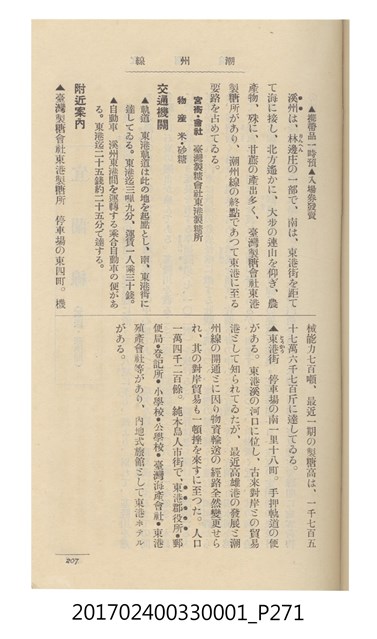 線州潮
▲携帶品一時預▲入場券發賣
溪州は、林邊庄の一部で、南は、東港街を距て
て海に接し、北方遙かに、大歩の連山を仰ぎ、農
產物、殊に、甘蔗の產出多く、臺灣製糖會社東港
製糖所があり、潮州線の終點であつて東港に至る
要路を占めてゐる。
官衙・會社 臺灣製糖會社東港製糖所
物產 米・砂糖
交通機關
▲軌道 東港軌道は此の地を起點とし、南、東港街に
達してゐる。東港迄三哩九分、運賃一人乘三十錢。
▲自動車 溪州東港間を運轉する乘合自動車の便があ
る。東港迄二十五錢約二十五分で達する。
附近案內
▲臺灣製糖會社東港製糖所 停車場の東四町。機
械能力七百噸、最近一期の製糖高は、一千七百五
十七萬六千七百斤に達してゐる。
▲東港街 停車場の南一里十八町。手押軌道の便
がある。東港溪の河口に位し、古來對岸との貿易
港として知られてゐたが、最近高雄港の發展と潮
州線の開通とに因り物資輸送の經路全然變更せら
れ、其の對岸貿易も一頓挫を來すに至つた。人口
一萬四千二百餘。純本島人市街で、東港郡役所・郵
便局・登記所・小學校・公學校・臺灣海產會社・東港
殖產會社等があり、內地式旅館として東港ホテル
がある。
207
201702400330001_P271